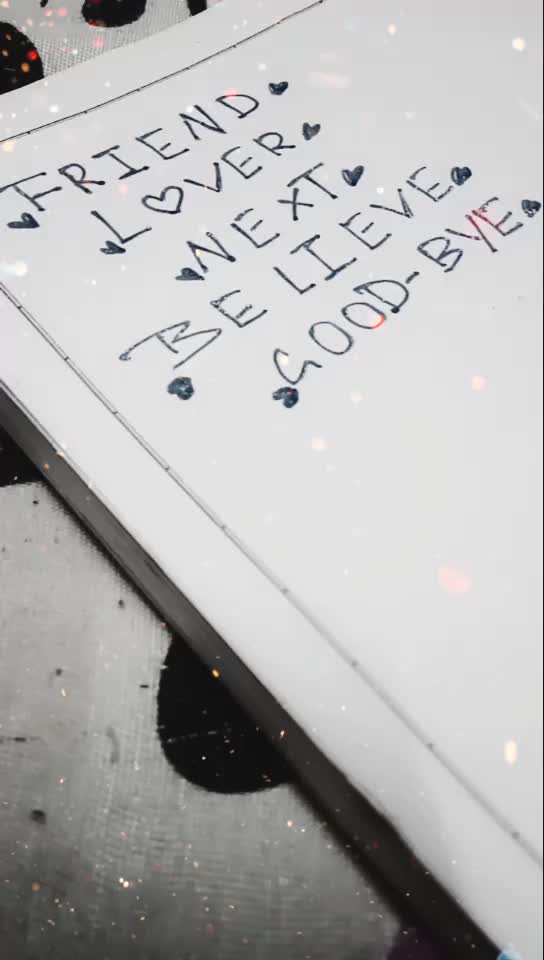 FRIEND
L♡VER
NEXT
BELIEVE
GOOD-BYE